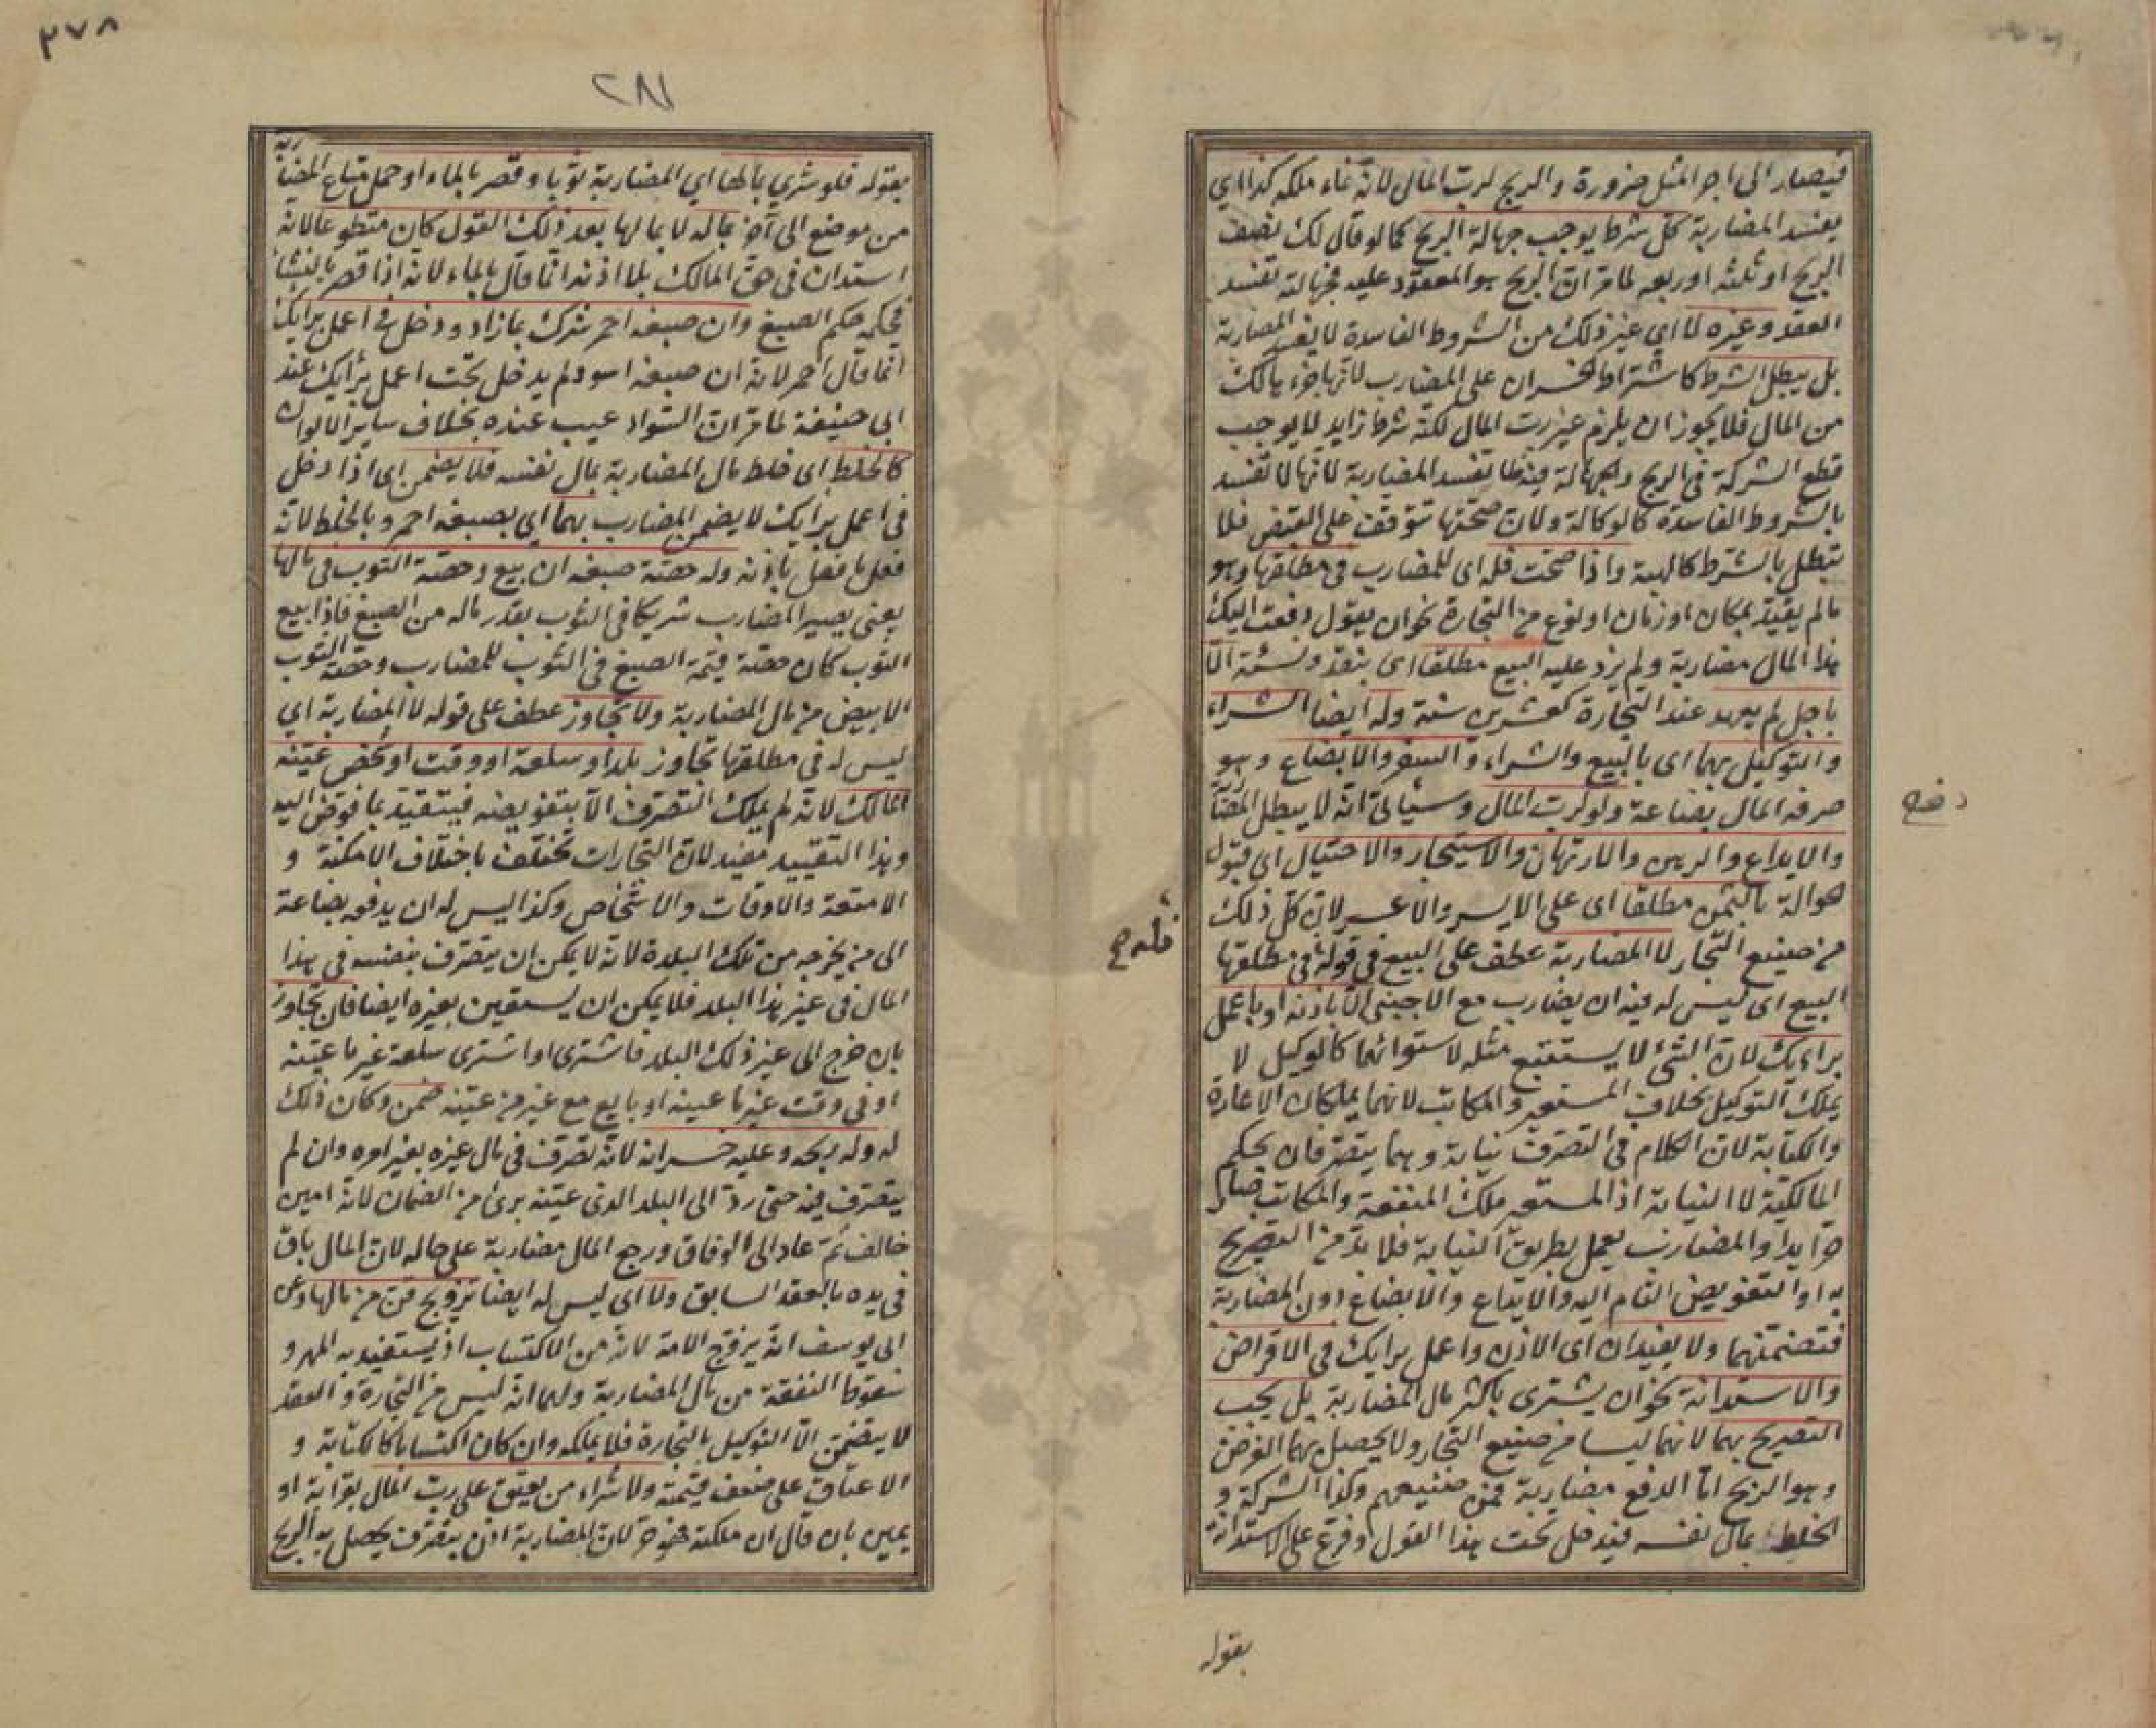 فيصار الى اجر المثل ضرورة والربح لرب المال لانه نماء ملكه كذا اي
يفسد المضاربة كل شرط يوجب جهالة الربح كما لو قال لك نصف
الربح او ثلثه او ربعه لما مر ان الربح هو المعقود عليه فجهالته تفسد
العقد وغيره لا اي غير ذلك من الشروط الفاسدة لا يفسد المضاربة
بل يبطل الشرط كاشتراط الخسران على المضارب لانها جزء هالك
من المال فلا يجوز ان يلزم غير رب المال لكنه شرط زايد لا يوجب
قطع الشركة في الربح والجهالة فيه فلا تفسد المضاربة لانها لا تفسد
بالشروط الفاسدة كالوكالة ولان صحتها تتوقف على القبض فلا
تبطل بالشرط كالهبة واذا صحت فله اى للمضارب في مطلقها وهو
مالم يقيد بمكان او زمان او نوع من التجارة نحو ان يقول دفعت اليك
هذا المال مضاربة ولم يزد عليه البيع مطلقا اى بنقد ونسئة الا
باجل لم يعهد عند التجارة كعشرين سنة وله ايضا الشراء
والتوكيل بهما اى بالبيع والشراء والسفر والابضاع وهو
صرفه المال بضاعة ولو لرب المال وسيأتى انه لا يبطل المضاربة
والايداع والرهن والارتهان والاستيجار والاحتيال اى قبول
الحوالة بالثمن مطلقا اى على الايسر والاعسر لان كل ذلك
من صنيع التجار لا المضاربة عطف على البيع في قوله في مطلقها
البيع اى ليس له فيه ان يضارب مع الاجنبي الا باذنه او باعمل
براءيك لان الشئ لا يستتبع مثله لاستوائهما كالوكيل لا
يملك التوكيل بخلاف المستعير والمكاتب لانهما يملكان الاعارة
والكتابة لان الكلام في التصرف نيابة وهما يتصرفان بحكم
المالكية لا النيابة اذ المستعير ملك المنفعة والمكاتب صار
حرا يدا والمضارب يعمل بطريق النيابة فلا بد من التصريح
به او التفويض التام اليه والايداع والابضاع دون المضاربة
فتضمنهما ولا يفيدان اى الاذن واعمل برايك في الاقراض
والاستدانة نحو ان يشترى باكثر مال المضاربة بل يجب
التصريح بهما لانهما ليسا من صنيع التجار ولا يحصل بهما الغرض
وهو الربح اما الدفع مضاربة فمن صنيعهم وكذا الشركة و
الخلط بمال نفسه فيدخل تحت هذا القول وفرع على الاستدانة
دفع
بقوله
٣٧٨
٢٨١
بقوله فلو شري بمالها اي المضاربة ثوبا وقصر بالماء او حمل متاع المضاربة
من موضع الى آخر بماله لا بمالها بعد ذلك القول كان متطوعا لانه
استدان في حق المالك بلا اذنه انما قال بالماء لانه اذا قصر بالنشا
فحكمه حكم الصبغ وان صبغه احمر شرك بما زاد ودخل في اعمل برايك
انما قال احمر لانه ان صبغه اسود لم يدخل تحت اعمل برأيك عند
ابي حنيفة لما مر ان السواد عيب عنده بخلاف ساير الالوان
كالخلط اى خلط مال المضاربة بمال نفسه فلا يضمن اى اذا دخل
في اعمل برايك لا يضمن المضارب بهما اي بصبغه احمر وبالخلط لانه
فعل ما فعل باذنه وله حصة صبغه ان بيع وحصة الثوب في مالها
يعني يصير المضارب شريكا في الثوب بقدر ماله من الصبغ فاذا بيع
الثوب كان حصة قيمة الصبغ في الثوب للمضارب وحصة الثوب
الابيض من مال المضاربة ولا تجاوز عطف على قوله لا المضاربة اي
ليس له في مطلقها تجاوز بلد او سلعة او وقت او شخص عينه
المالك لانه لم يملك التصرف الا بتفويضه فيتقيد بما فوض اليه
وهذا التقييد مفيد لان التجارات تختلف باختلاف الامكنة و
الامتعة والاوقات والاشخاص وكذا ليس له ان يدفعه بضاعة
الى من يخرجه من تلك البلدة لانه لا يمكن ان يتصرف بنفسه في هذا
المال في غير هذا البلد فلا يمكن ان يستعين بغيره ايضا فان تجاوز
بان خرج الى غير ذلك البلد فاشترى او اشترى سلعة غير ما عينه
او في وقت غير ما عينه او بايع مع غير من عينه ضمن وكان ذلك
له وله ربحه وعليه خسرانه لانه تصرف في مال غيره بغير امره وان لم
يتصرف فيه حتى رد الى البلد الذى عينه برئ من الضمان لانه امين
خالف ثم عاد الى الوفاق ورجع المال مضاربة على حاله لان المال باق
في يده بالعقد السابق ولا اى ليس له ايضا تزويج قن من مالها وعن
ابي يوسف انه يزوج الامة لانه من الاكتساب اذ يستفيد به المهر و
سقوط النفقة من مال المضاربة ولهما انه ليس من التجارة والعقد
لا يتضمن الا التوكيل بالتجارة فلا يملكه وان كان اكتسابا كالكتابة و
الاعتاق على ضعف قيمته ولا شراء من يعتق على رب المال بقرابة او
يمين بان قال ان ملكته فهو حر لان المضاربة اذن بتصرف يحصل به الربح